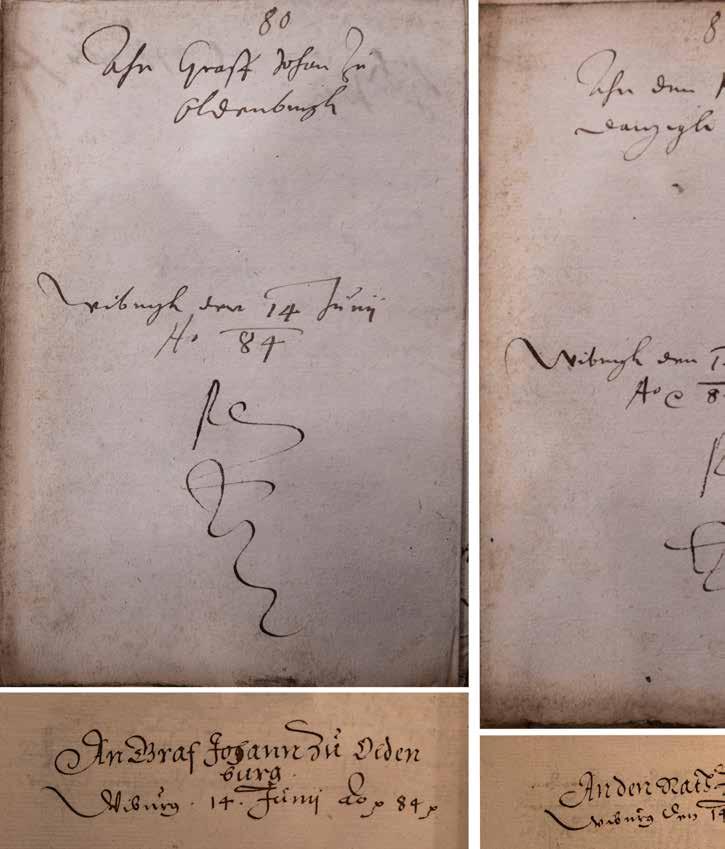 80
Ahn Graff Johan Zu
Oldenburgh
Wiburgh den 14 Junij
Ao 84
An Graf Johann Zu Olden
burg.
Wiburg . 14. Junij Ao 84
8
Ahn den
Danzigk
Wiburgh den 1
Ao 8
An den Rath
Wiburg den 14